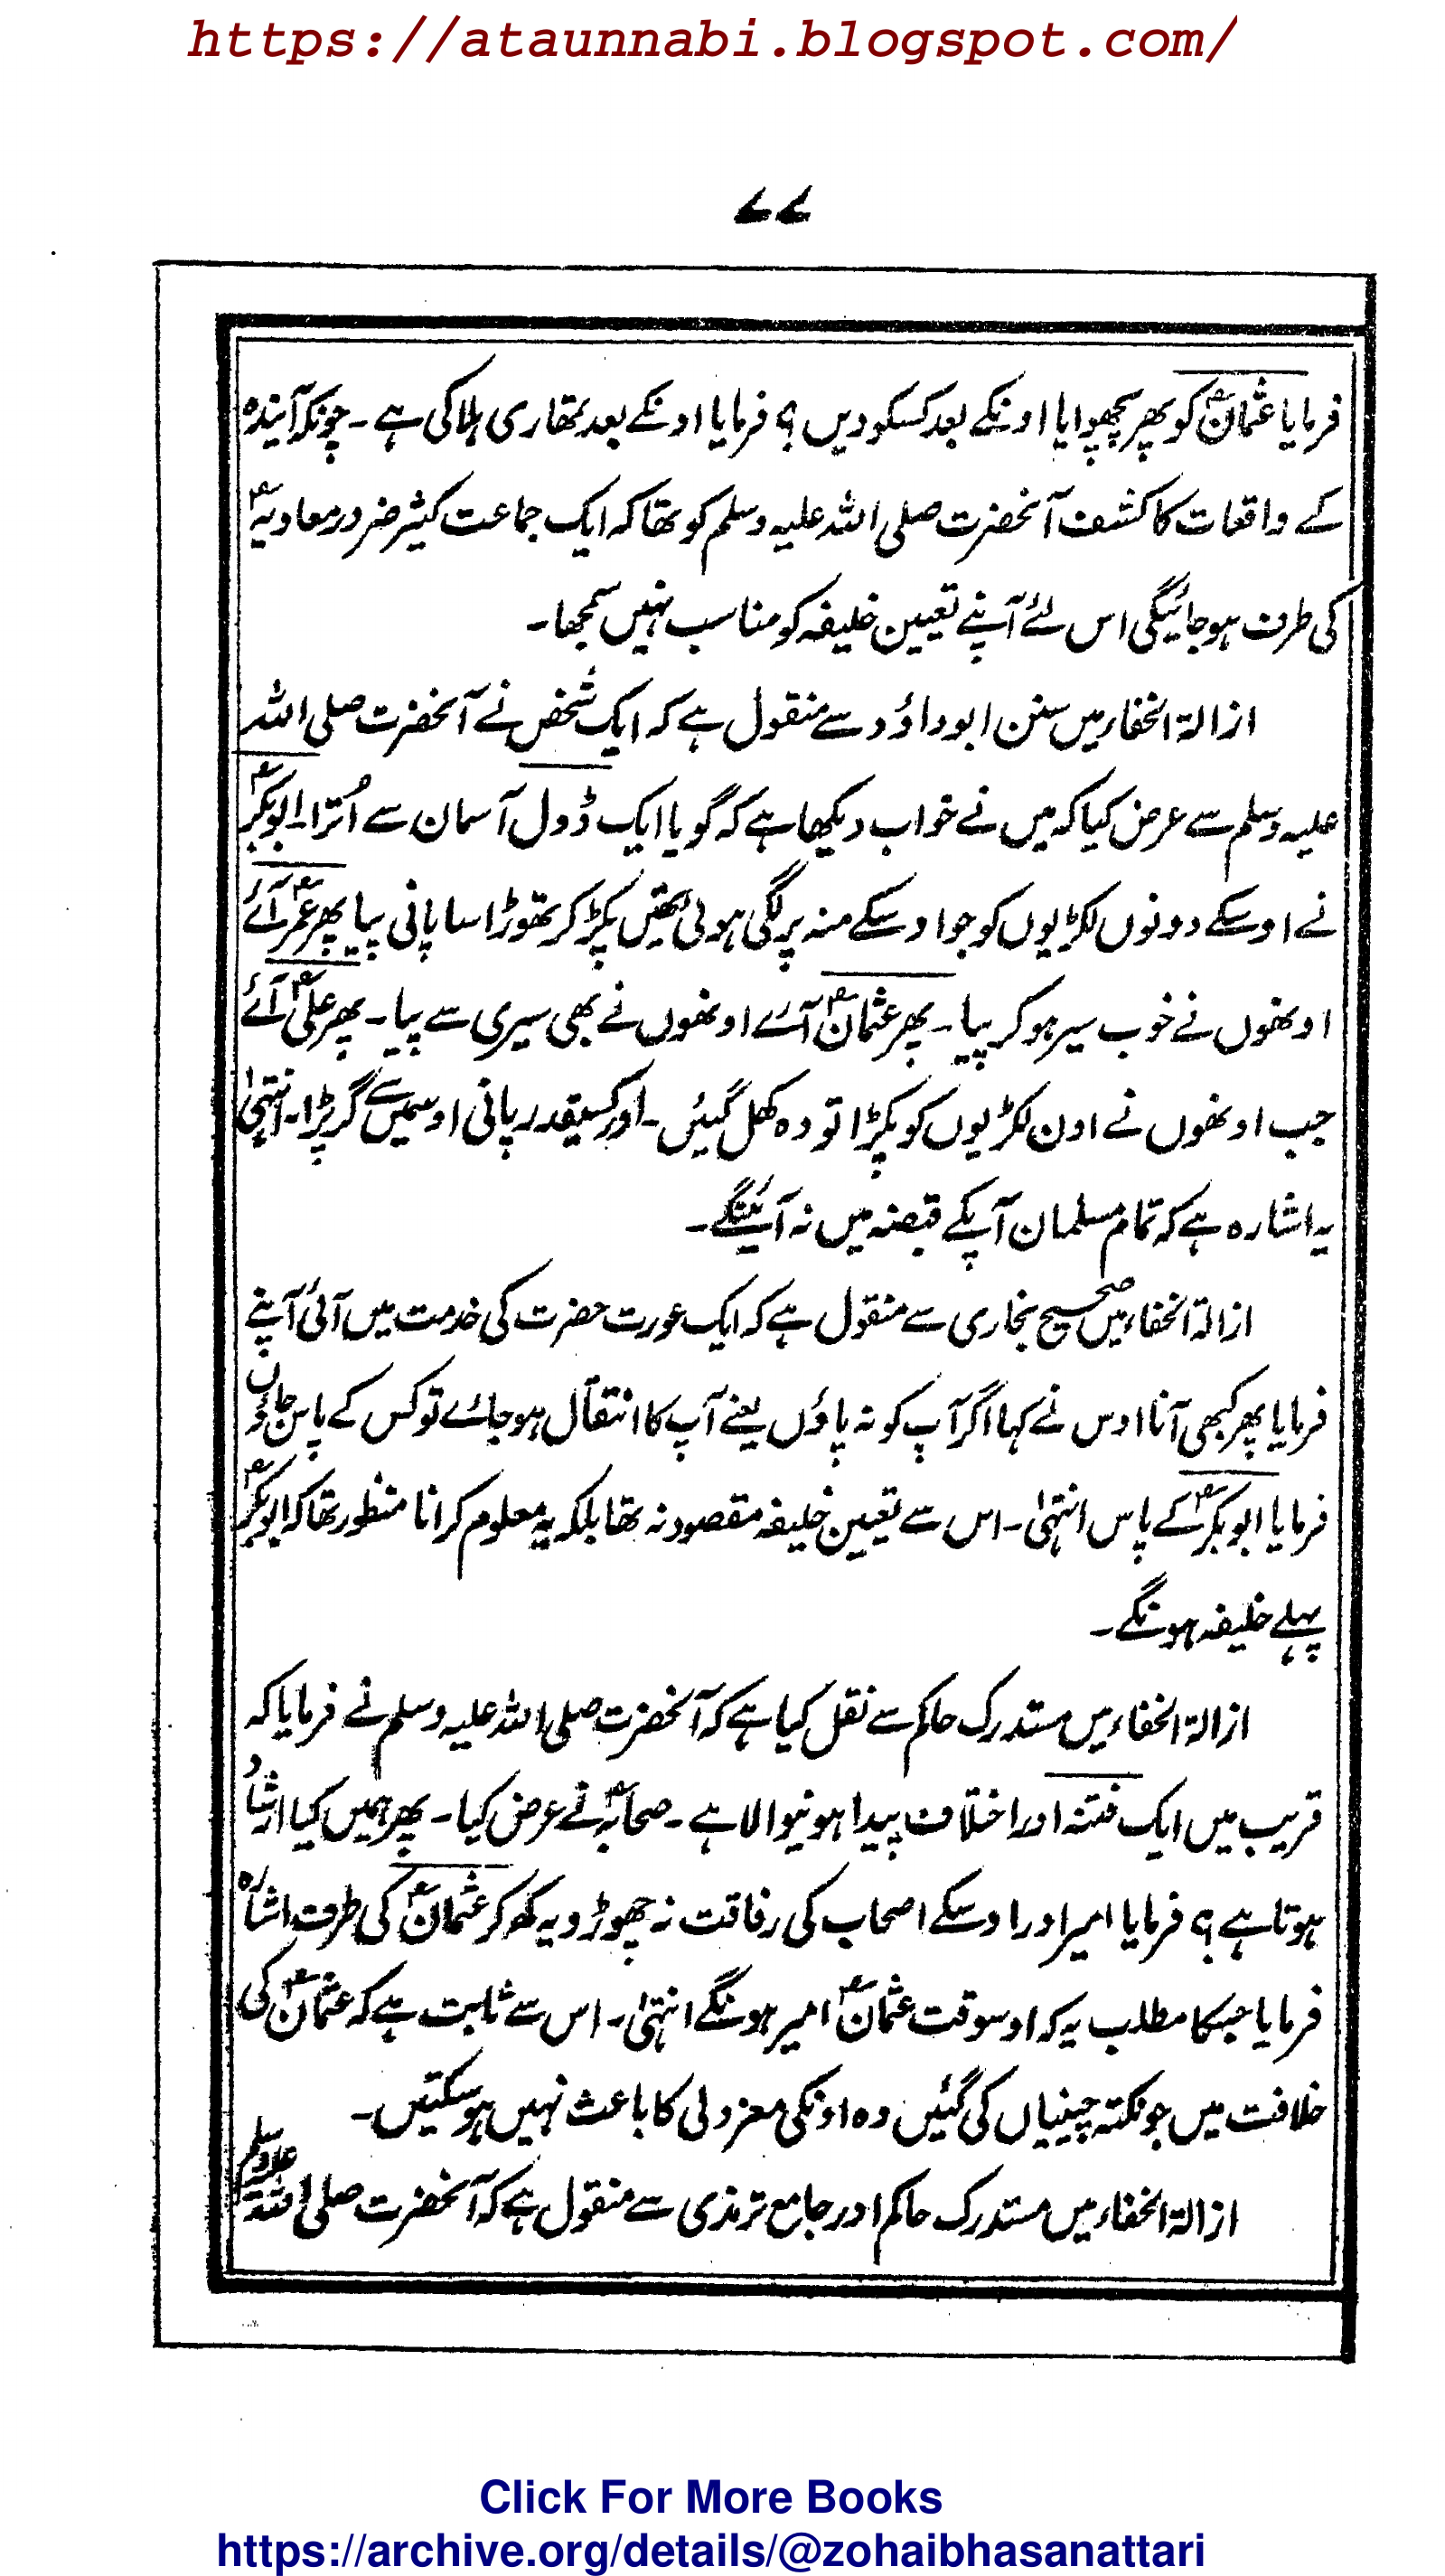 https://ataunnabi.blogspot.com/
۷۷
فرمایا عثمانؓ کو پھر پچھوایا اونکے بعد کسکو دیں ؟ فرمایا اونکے بعد تمھاری ہلاکی ہے ۔ چونکہ آیندہ
کے واقعات کا کشف آنحضرت صلی اللہ علیہ وسلم کو تھا کہ ایک جماعت کثیر ضرور معاویہؓ
کی طرف ہوجائیگی اس لئے آپنے تعیین خلیفہ کو مناسب نہیں سمجھا ۔
ازالۃ الخفاء میں سنن ابو داؤد سے منقول ہے کہ ایک شخص نے آنحضرت صلی اللہ
علیہ وسلم سے عرض کیا کہ میں نے خواب دیکھا ہے کہ گویا ایک ڈول آسمان سے اُترا ۔ ابوبکرؓ
نے اوسکے دونوں لکڑیوں کو جو اوسکے منہ پر لگی ہوئی تھیں پکڑ کر تھوڑا سا پانی پیا پھر عمرؓ آئے
اونھوں نے خوب سیر ہو کر پیا ۔ پھر عثمانؓ آے اونھوں نے بھی سیری سے پیا ۔ پھر علیؓ آئے
جب اونھوں نے اون لکڑیوں کو پکڑا تو وہ کھل گیئں ۔ اور کسیقدر پانی اوسمیں سے گر پڑا ۔ انتہیٰ
یہ اشارہ ہے کہ تمام مسلمان آپکے قبضہ میں نہ آیئنگے ۔
ازالۃ الخفاء میں صحیح بخاری سے منقول ہے کہ ایک عورت حضرت کی خدمت میں آئی آپنے
فرمایا پھر کبھی آنا اوس نے کہا اگر آپ کو نہ پاؤں یعنے آپ کا انتقال ہوجاے تو کس کے پاس جاؤں
فرمایا ابوبکرؓ کے پاس انتہیٰ ۔ اس سے تعیین خلیفہ مقصود نہ تھا بلکہ یہ معلوم کرانا منظور تھا کہ ابوبکرؓ
پہلے خلیفہ ہونگے ۔
ازالۃ الخفاء میں مستدرک حاکم سے نقل کیا ہے کہ آنحضرت صلی اللہ علیہ وسلم نے فرمایا کہ
قریب میں ایک فتنہ اور اختلاف پیدا ہونیوالا ہے ۔ صحابہؓ نے عرض کیا ۔ پھر ہمیں کیا ارشاد
ہوتا ہے ؟ فرمایا امیر اور اوسکے اصحاب کی رفاقت نہ چھوڑو یہ کھ کر عثمانؓ کی طرف اشارہ
فرمایا جسکا مطلب یہ کہ اوسوقت عثمانؓ امیر ہونگے انتہیٰ ۔ اس سے ثابت ہے کہ عثمانؓ کی
خلافت میں جو نکتہ چینیاں کی گئیں وہ اونکی معزولی کا باعث نہیں ہوسکتیں ۔
ازالۃ الخفاء میں مستدرک حاکم اور جامع ترمذی سے منقول ہے کہ آنحضرت صلی اللہ علیہ وسلم
Click For More Books
https://archive.org/details/@zohaibhasanattari